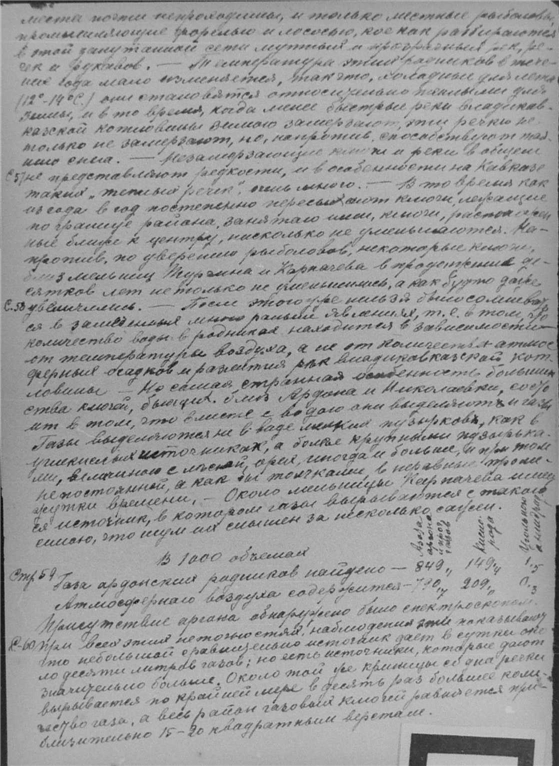 места почти непроходимы, и только местные рыболовы,
промышляющие форелью и лососью, кое как разбираются
в этой запутанной сети мутных и прозрачных рек, ре-
чек и рукавов. — Температура этих родников в тече-
ние года мало изменяется, так что, холодные для лета
(12°-14°С) они становятся относительно теплыми для
зимы, и в то время, когда менее быстрые реки владикав-
казской котловины зимою замерзают, эти речки не
только не замерзают, но, напротив, способствуют тая-
нию снега. — Незамерзающие ключи и реки в общем
С.57 не представляют редкости, и в особенности на Кавказе
таких „теплых речек" очень много. — В то время как
из года в год постепенно пересыхают ключи, лежащие
по границе района, занятого ими, ключи, расположен-
ные ближе к центру, нисколько не уменьшаются. На-
против, по уверению рыболовов, некоторые ключи,
близ мельниц Тургана и Карпачева в продолжении де-
сятков лет не только не уменьшились, а как будто даже
С.58 увеличились. — После этого уже нельзя было сомневать-
ся в замеченных мною раньше явлениях, т.е. в том, что
количество воды в родниках находится в зависимости
от температуры воздуха, а не от количества атмос-
ферных осадков и разлития рек владикавказской кот-
ловины — Но самая странная особенность большин-
ства ключей, бьющих близ Ардона и Николаевки, состо-
ит в том, что вместе с водою они выделяют и газы.
Газы выделяются не в виде мелких пузырьков, как в
углекислых источниках, а более крупными пузырька-
ми, величиною с лесной орех, иногда и больше, и при том
не постоянно, а как бы толчками в неравные проме-
жутки времени. — Около мельницы Карпачева имеет-
ся источник, в котором газы вырываются с такой
силою, что шум их слышен за несколько сажен.
Азота аргона Кисло-рода Угольного ангидрида
В 1000 объемах
Стр 59. Газа ардонских родников найдено — 849,, 149,, 1,5
Атмосферного воздуха содержится — 790,, 209,, 0,3
Присутствие аргона обнаружено было спектроскопом.
С.60 При всей этих неточностях, наблюдения эти показывают
что небольшой сравнительно источник дает в сутки око-
ло десяти литров газов; но есть источники, которые дают
значительно больше. Около той же криницы со дна реки
вырывается по крайней мере в десять раз большее коли-
чество газа, а весь район газовых ключей равняется при-
близительно 15-20 квадратным верстам.